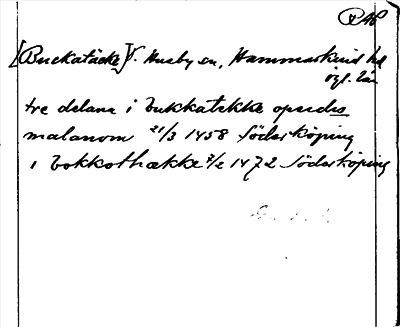 RAP
[Buckatäcke] f. Husby sn, Hammarkind hd
ögl. län
tre delana i bukkatekke opendes
malanom 21/3 1458 Söderköping
i bokkothække 2/2 1472 Söderköping